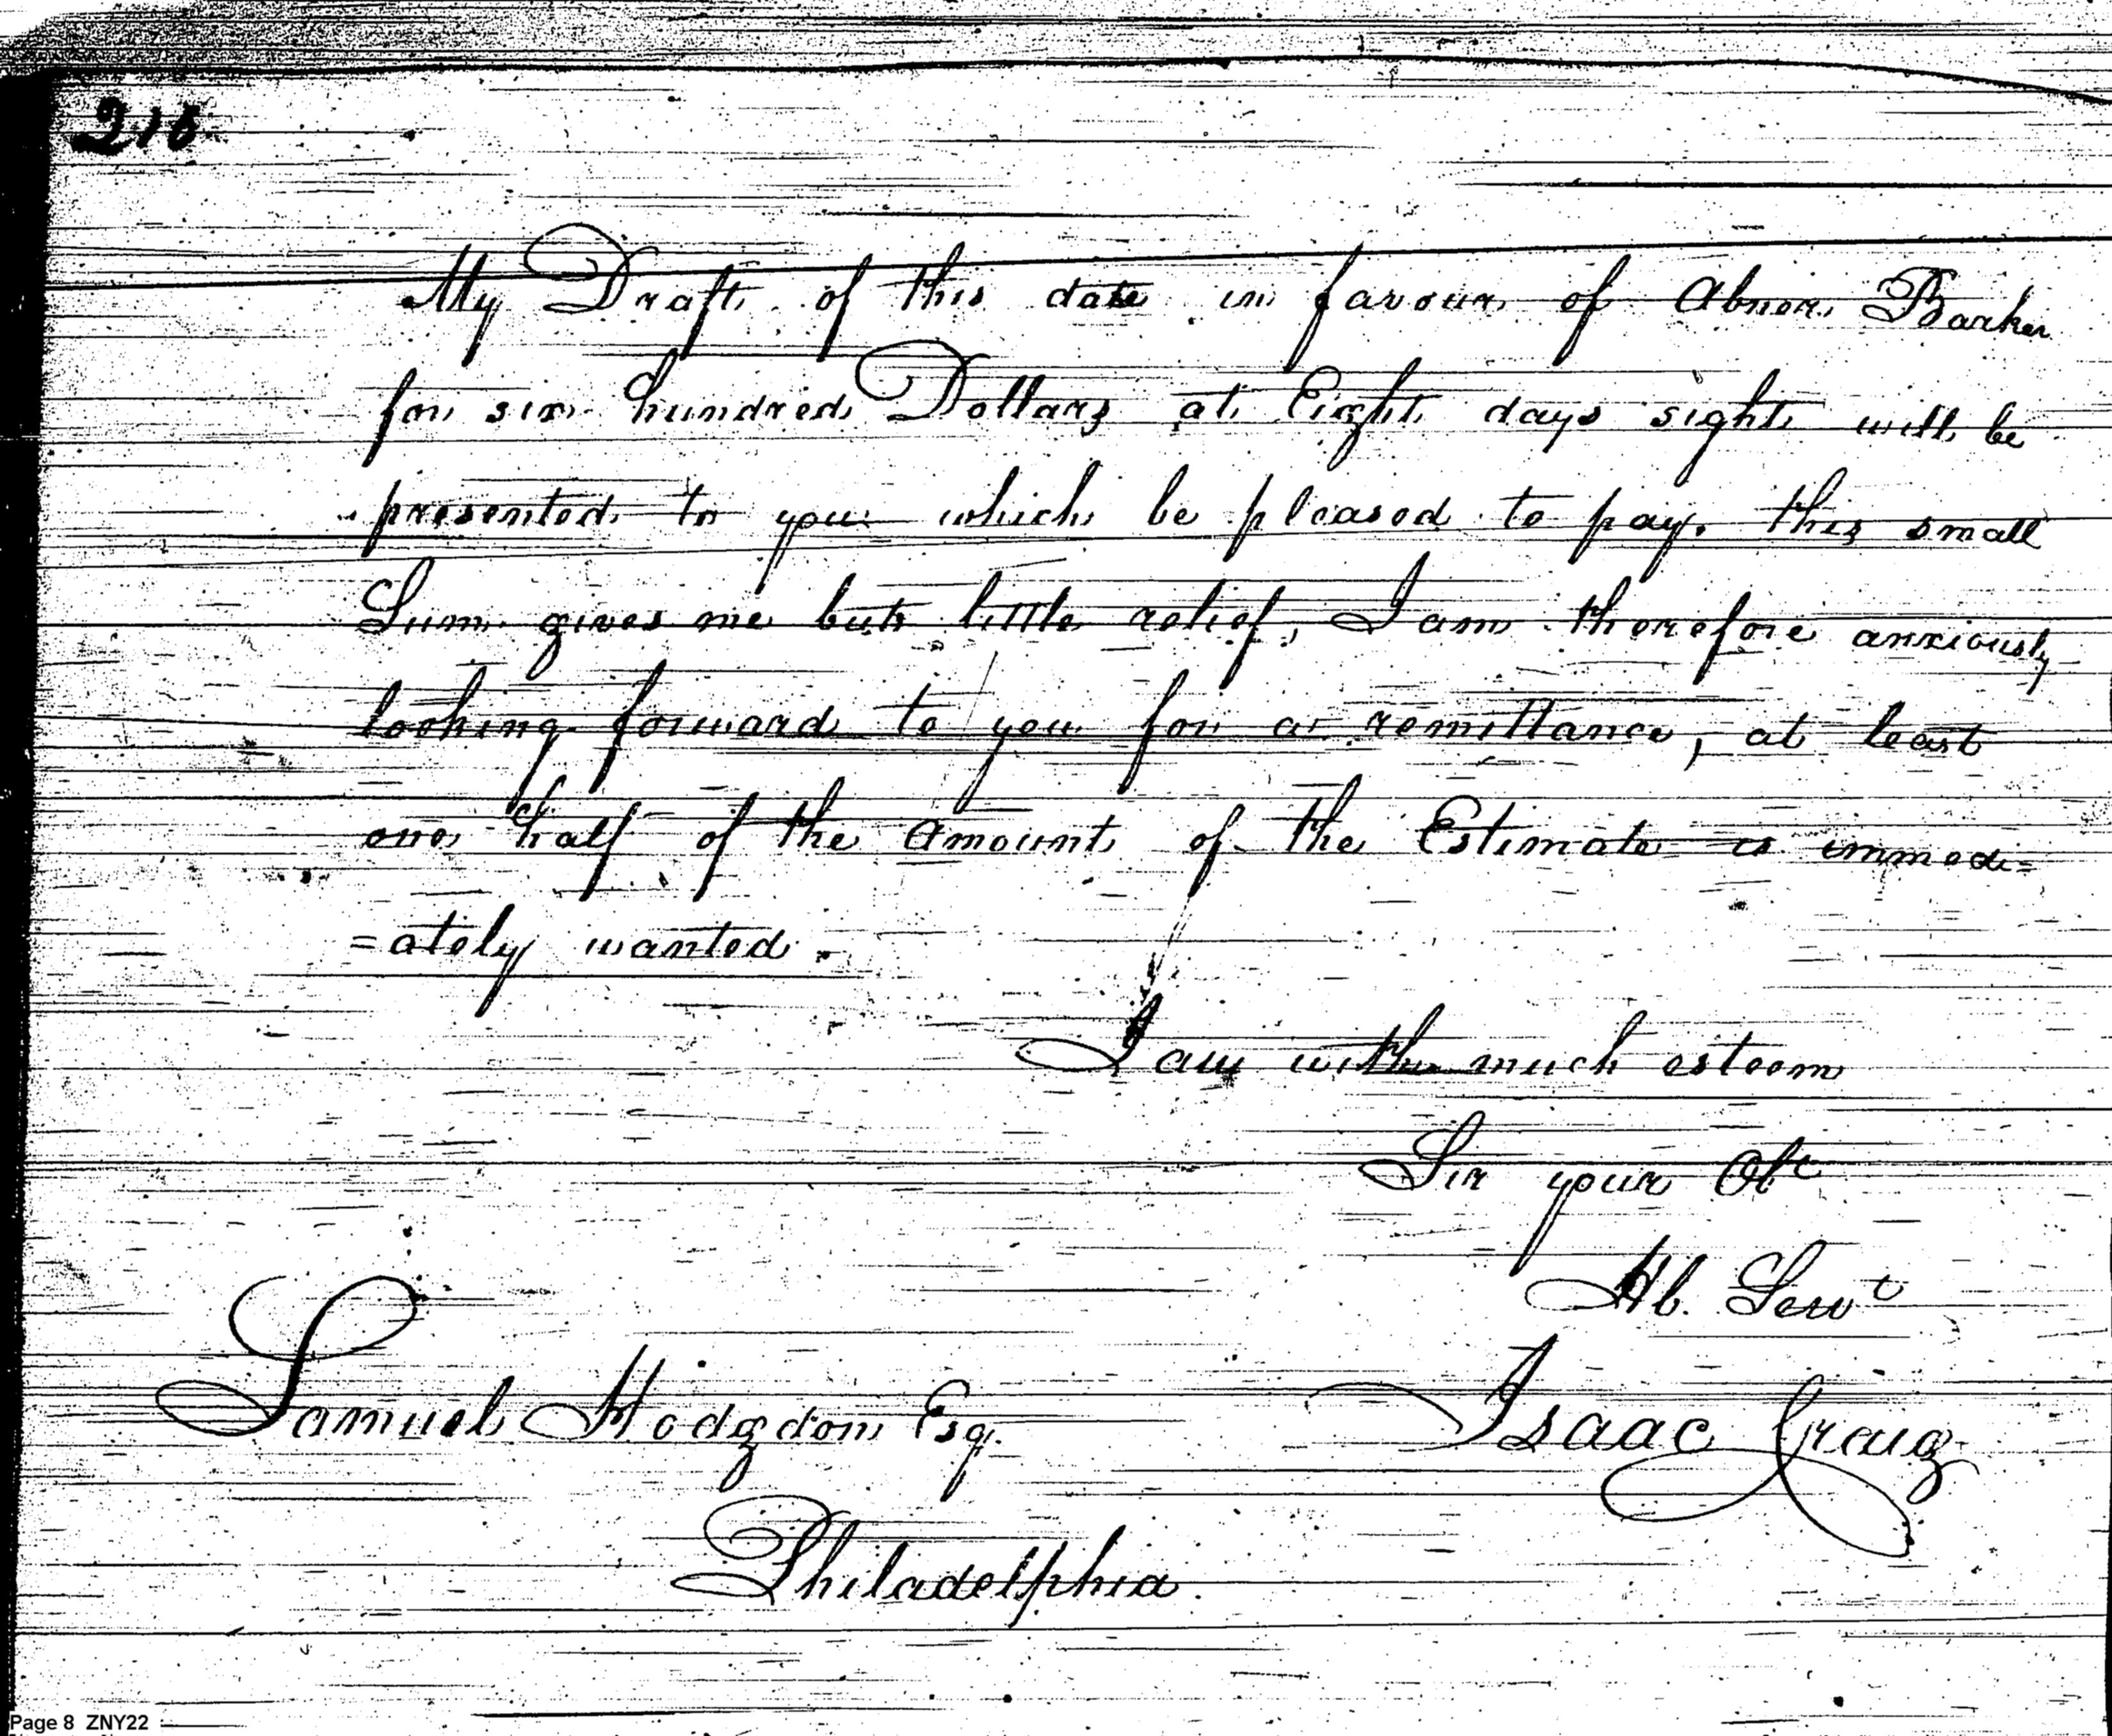 218
My Draft of this date in favour of Abner Barker
for six hundred Dollars at Eight days sight will be
presented to you which be pleased to pay. this small
Sum gives me but little relief, I am therefore anxiously
looking forward to you for a remittance, at least
one half of the Amount of the Estimate is immedi=
=ately wanted.
I am with much esteem
Sir your Obt
Hb. Servt
Isaac Craig
Samuel Hodgdon Esq.
Philadelphia.
Page 8 ZNY22